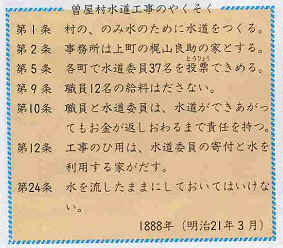 曽屋村水道工事のやくそく
第1条 村の、のみ水のために水道をつくる。
第2条 事務所は上町の梶山良助の家とする。
とうひょう
第5条 各町で水道委員37名を投票できめる。
第9条 職員12名の給料はださない。
第10条 職員と水道委員は、水道ができあがっ
てもお金が返しおわるまで責任を持つ。
第12条 工事のひ用は、水道委員の寄付と水を
利用する家がだす。
第24条 水を流したままにしておいてはいけな
い。
1888年（明治21年3月）